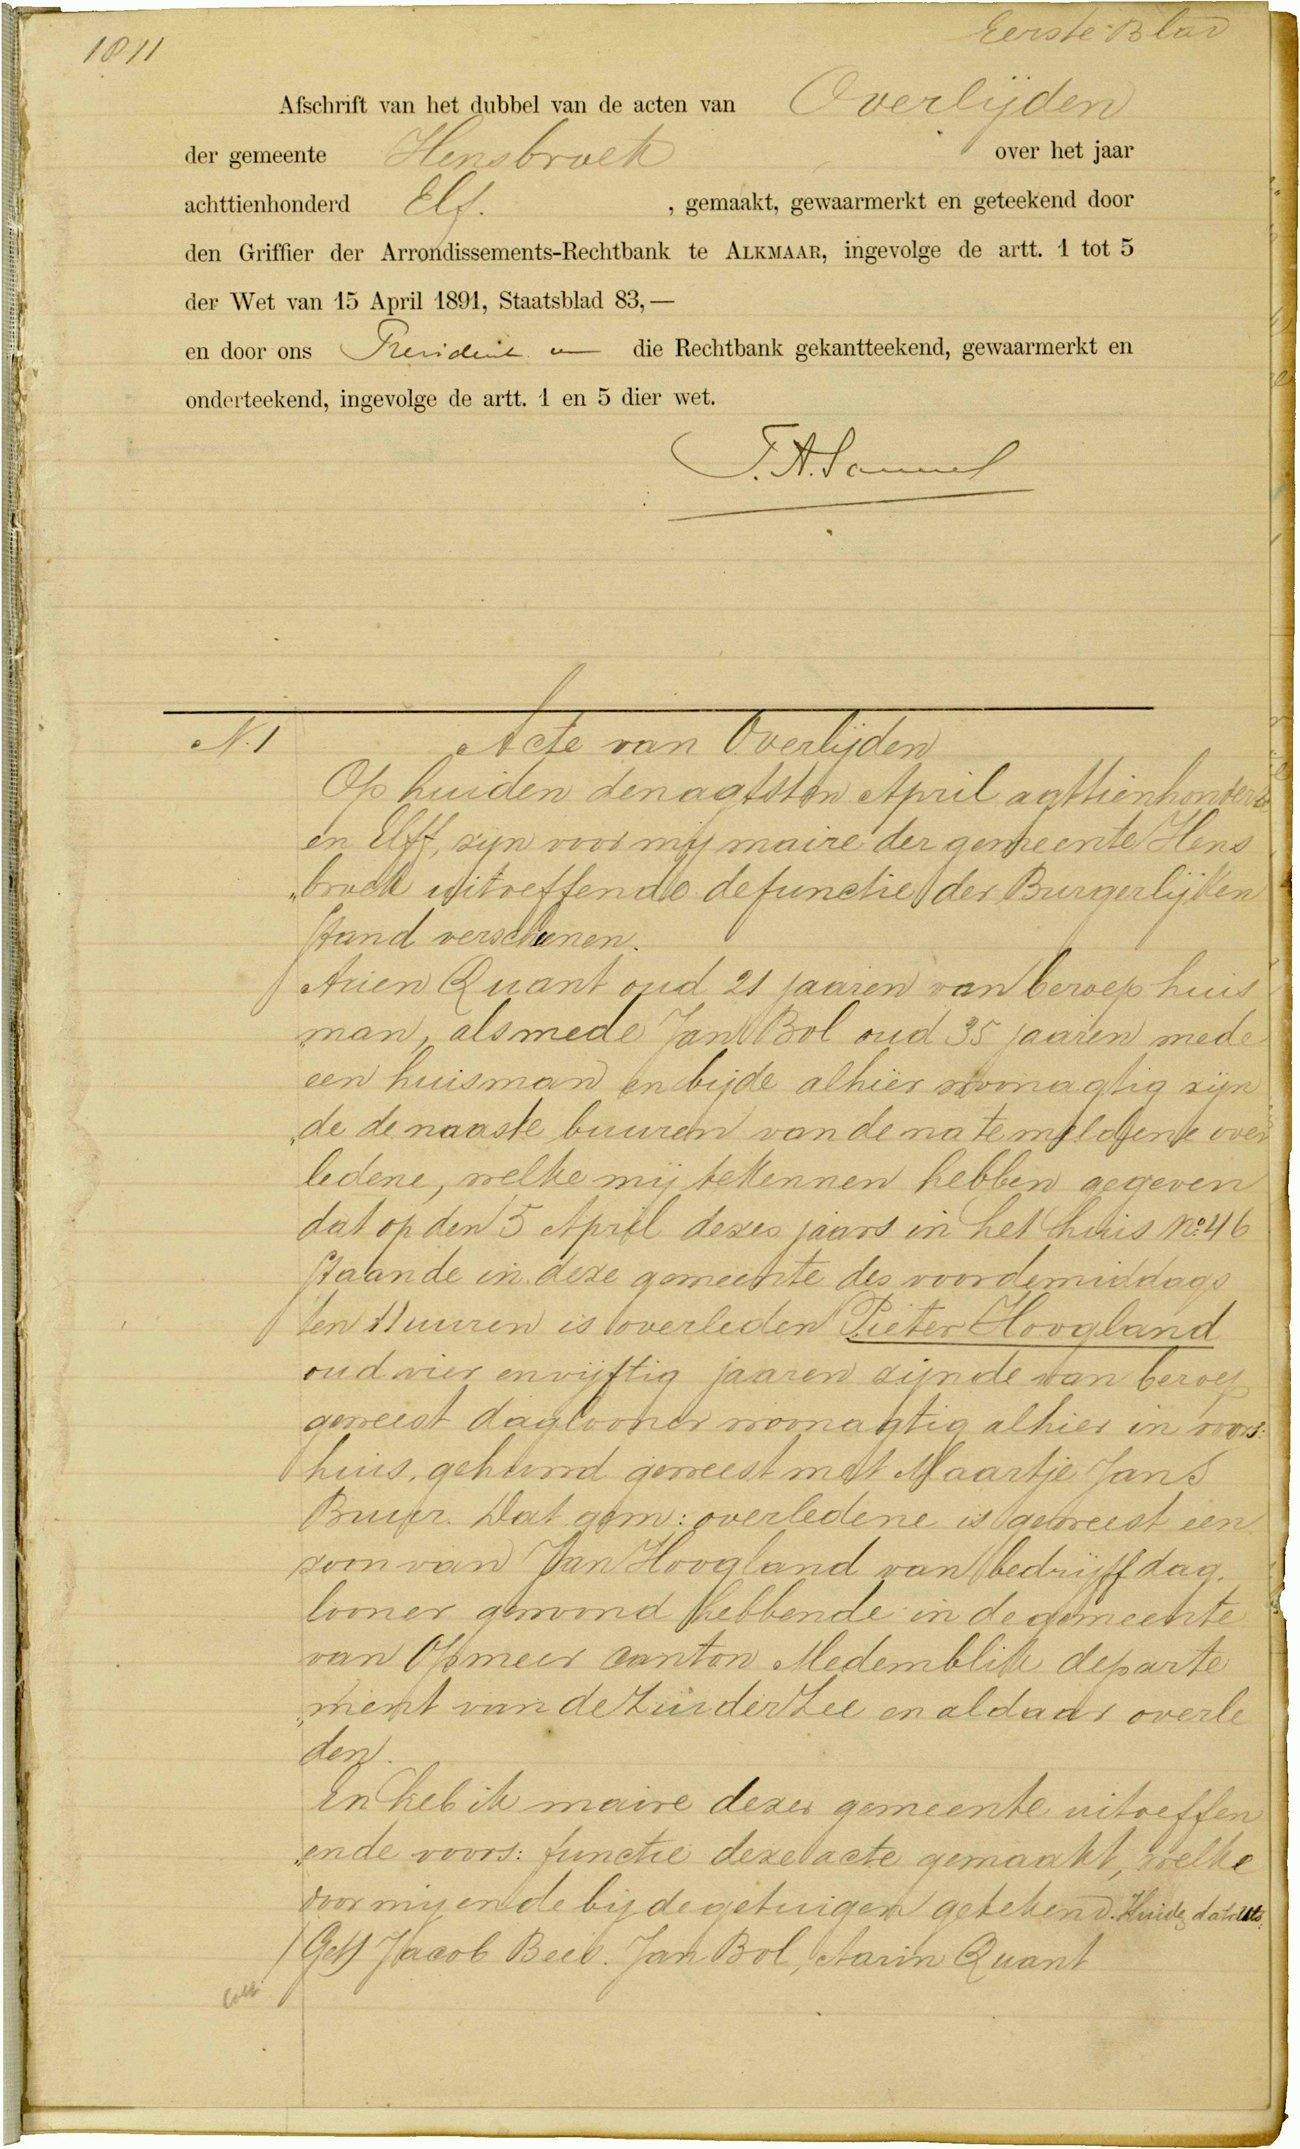 1811
Eerste Blad
Afschrift van het dubbel van de acten van Overlijden
der gemeente Hensbroek over het jaar
achttienhonderd Elf. , gemaakt, gewaarmerkt en geteekend door
den Griffier der Arrondissements-Rechtbank te ALKMAAR, ingevolge de artt. 1 tot 5
der Wet van 15 April 1891, Staatsblad 83,—
en door ons President — die Rechtbank gekantteekend, gewaarmerkt en
onderteekend, ingevolge de artt. 1 en 5 dier wet.
N. 1 Acte van Overlijden
Op huiden den agtsten April agttienhonderd
en Elff, zyn voor mij maire der gemeente Hens
„broek uitoeffende de functie der Burgerlijken
Stand verschenen.
Arien Quant oud 21 jaaren van beroep huis
„man, alsmede Jan Bol oud 35 jaaren mede
een huisman en bijde alhier woonagtig zijn
„de de naaste buuren van de na te meldene over
ledene, welke mij te kennen hebben gegeven
dat op den 5 April dezes jaars in het huis No. 46
Staande in deze gemeente des voordemiddags
ten 11 uuren is overleden Pieter Hoogland
oud vier en vijftig jaaren zijnde van beroep
geweest daglooner woonagtig alhier in voors:
huis, gehuwd geweest met Maartje Jans
Bruer. Dat gem: overledene is geweest een
zoon van Jan Hoogland van bedrijff dag.
looner gewoond hebbende in de gemeente
van Opmeer canton Medemblik departe
„ment van de Zuider Zee en aldaar overle
den.
En heb ik maire dezer gemeente uitoeffen
„ende voors: functie deze acte gemaakt, welke
door mij en de bijde getuigen getekend. Huide dato uts.
(Get) Jacob Bees. Jan Bol, Aarin Quant